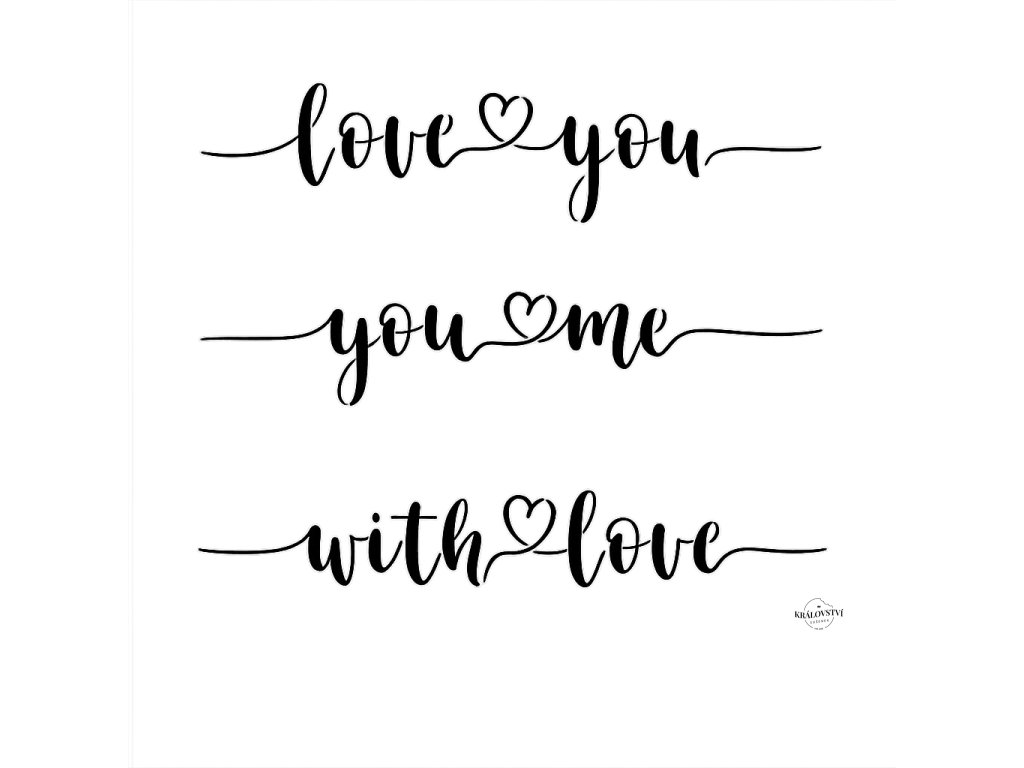 love you
you me
with love
KRÁLOVSTVÍ